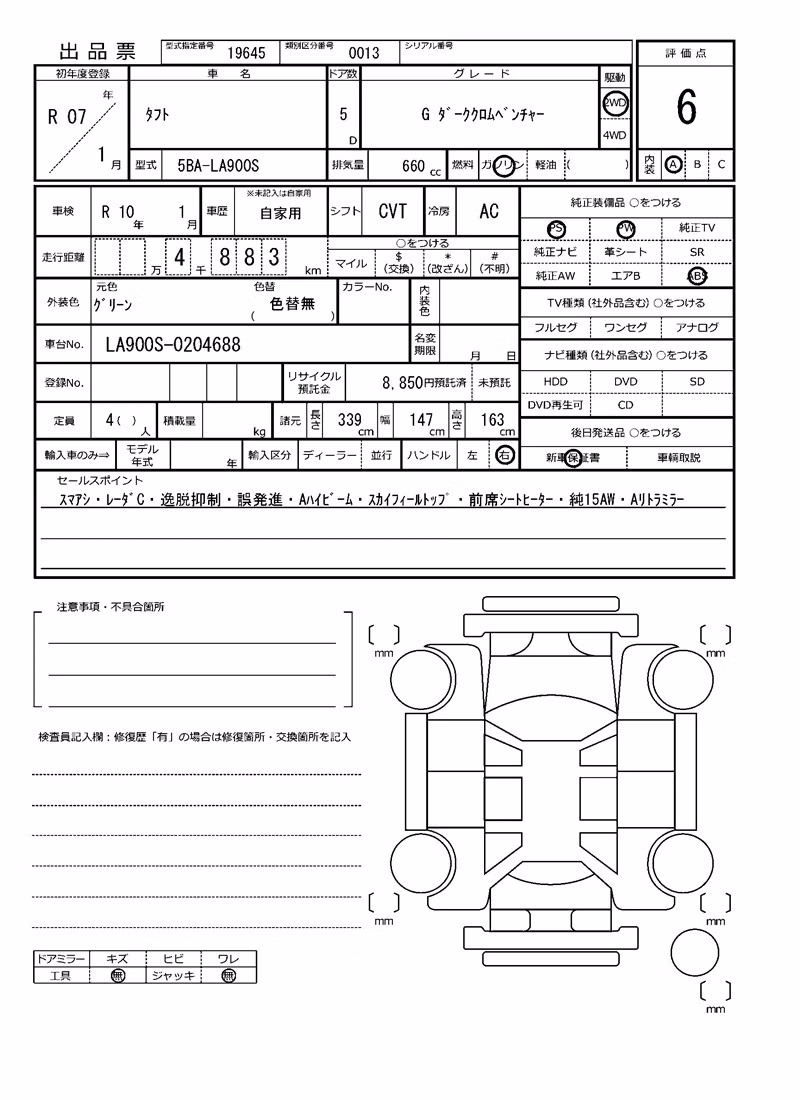 出品票 型式指定番号 19645 類別区分番号 0013 シリアル番号
評価点
6
内装 A B C
初年度登録 車名 ドア数 グレード 駆動
R 07 年 1 月 タフト 5 D G ダーククロムベンチャー 2WD
4WD
型式 5BA-LA900S 排気量 660 cc 燃料 ガソリン 軽油 ( )
車検 R 10 年 1 月 車歴 ※未記入は自家用 自家用 シフト CVT 冷房 AC
走行距離 万 4 千 8 8 3 km ○をつける
マイル $ (交換) * (改ざん) # (不明)
外装色 元色 グリーン 色替 ( 色替無 ) カラーNo. 内装色
車台No. LA900S-0204688 名変期限 月 日
登録No. リサイクル預託金 8,850円預託済 未預託
定員 4 ( ) 人 積載量 kg 諸元 長さ 339 cm 幅 147 cm 高さ 163 cm
輸入車のみ⇒ モデル年式 年 輸入区分 ディーラー 並行 ハンドル 左 右
純正装備品 ○をつける
PS PW 純正TV
純正ナビ 革シート SR
純正AW エアB ABS
TV種類 (社外品含む) ○をつける
フルセグ ワンセグ アナログ
ナビ種類 (社外品含む) ○をつける
HDD DVD SD
DVD再生可 CD
後日発送品 ○をつける
新車保証書 車輌取説
セールスポイント
スマアシ・レーダC・逸脱抑制・誤発進・Aハイビーム・スカイフィールトップ・前席シートヒーター・純15AW・Aリトラミラー
注意事項・不具合箇所
検査員記入欄：修復歴「有」の場合は修復箇所・交換箇所を記入
mm mm
mm mm
mm
ドアミラー キズ ヒビ ワレ
工具 無 ジャッキ 無